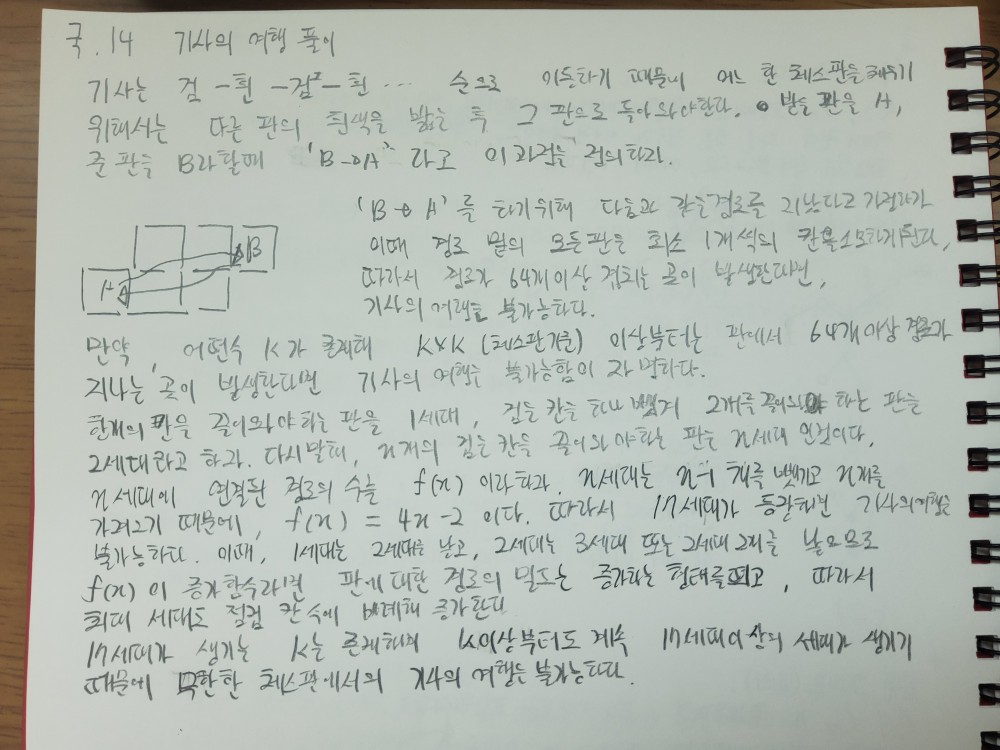 국.14 기사의 여행 풀이
기사는 검-흰-검-흰... 순으로 이동하기 때문에 어느 한 체스판을 채우기
위해서는 다른 판의 흰색을 밟은 후 그 판으로 돌아와야한다. 받은 판을 A,
준 판을 B라 할때 'B→A' 라고 이 과정을 정의하자.
'B→A'를 하기위해 다음과 같은 경로를 지났다고 가정하자
이때 경로 밑의 모든판은 최소 1개씩의 칸을 소모하게 된다,
따라서 경로가 64개이상 겹치는 곳이 발생한다면,
기사의 여행은 불가능하다.
B
A
만약, 어떤수 K가 존재해 K×K (체스판기준) 이상부터는 판에서 64개이상 경로가
지나는 곳이 발생한다면 기사의 여행은 불가능함이 자명하다.
한개의 칸을 끌어와야 하는 판을 1세대, 검은 칸을 하나 뺏겨 2개를 끌어와야 하는 판을
2세대라고 하자. 다시말해, n개의 검은 칸을 끌어와야하는 판은 n세대 인것이다.
n세대에 연결된 경로의 수를 f(n) 이라하자. n세대는 n-1 개를 뺏기고 n개를
가져오기 때문에, f(n) = 4n-2 이다. 따라서 17세대가 등장하면 기사의여행은
불가능하다. 이때, 1세대는 2세대를 낳고, 2세대는 3세대 또는 2세대 2개를 낳으므로
f(n)이 증가함수라면 판에 대한 경로의 밀도는 증가하는 형태를띄고, 따라서
최대 세대도 점검 칸 수에 비례해 증가한다
17세대가 생기는 K는 존재하며 K이상부터도 계속 17세대이상의 세대가 생기기
때문에 무한한 체스판에서의 기사의 여행은 불가능하다.